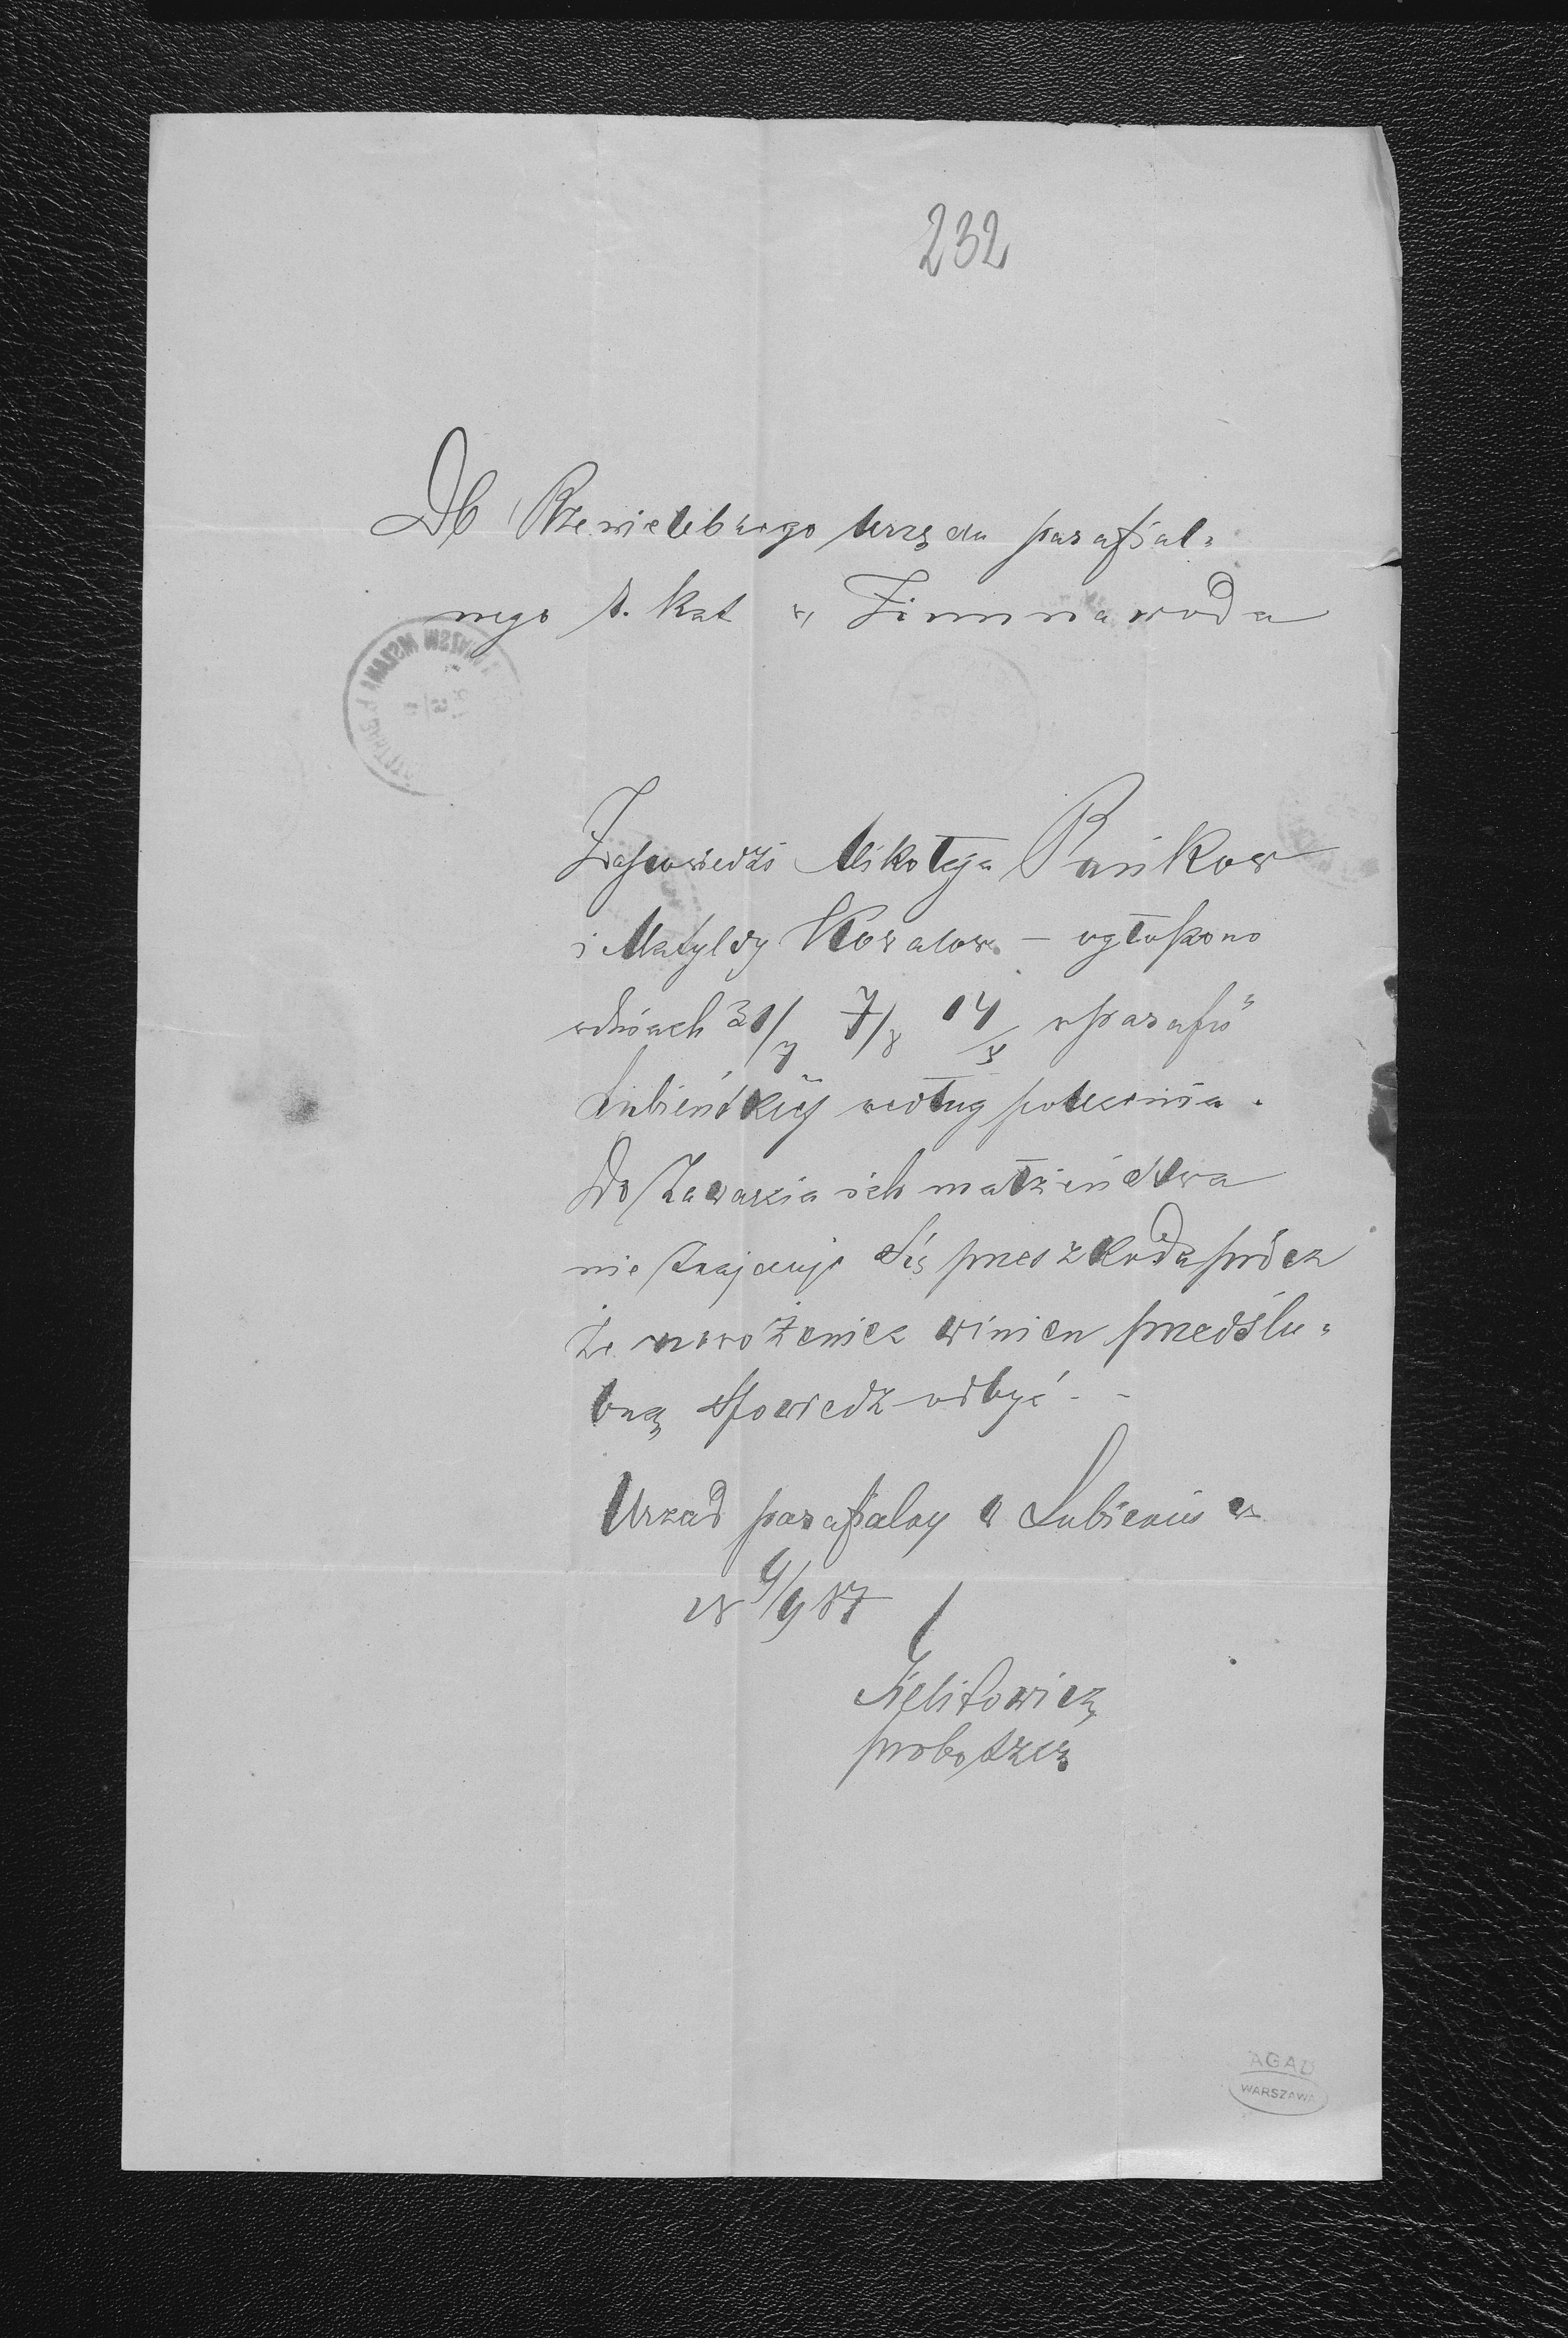 232
Do Przewielebnego Urzędu parafial=
nego ł. kat w Zimnawoda
Zapowiedzi Mikołaja Pańkow
i Matyldy Kowalow – ogłoszono
w dniach 31/7 7/8 14/8 w parafii
Lubieńskiej według polecenia.
Do zawarcia ich małżeństwa
nie znajduje się przeszkoda prócz
że nowożeniec winien przedślu=
bną spowiedz odbyć. –
Urząd parafialny w Lubieniu w
9/9 87
proboszcz
AGAD
WARSZAWA